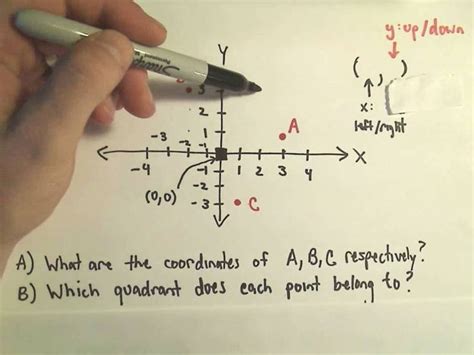 y: up/down
Sharpie
Y
( , )
3
2
x:
left/right
1
A
-3
-2
-1
X
-4
-1
1
2
3
4
(0,0)
-2
-3
C
A) What are the coordinates of A, B, C respectively?
B) Which quadrant does each point belong to?